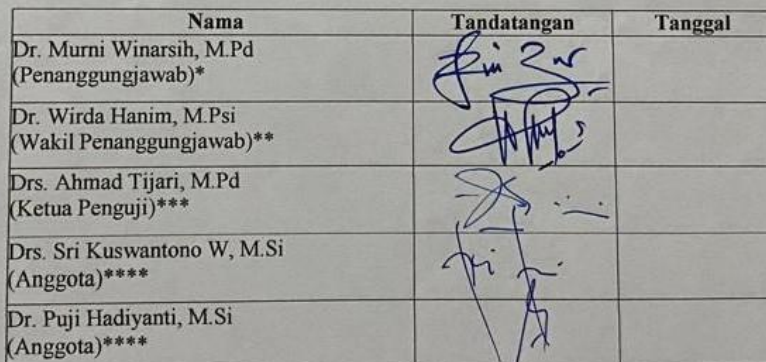 Nama Tandatangan Tanggal
Dr. Murni Winarsih, M.Pd
(Penanggungjawab)*
Dr. Wirda Hanim, M.Psi
(Wakil Penanggungjawab)**
Drs. Ahmad Tijari, M.Pd
(Ketua Penguji)***
Drs. Sri Kuswantono W, M.Si
(Anggota)****
Dr. Puji Hadiyanti, M.Si
(Anggota)****